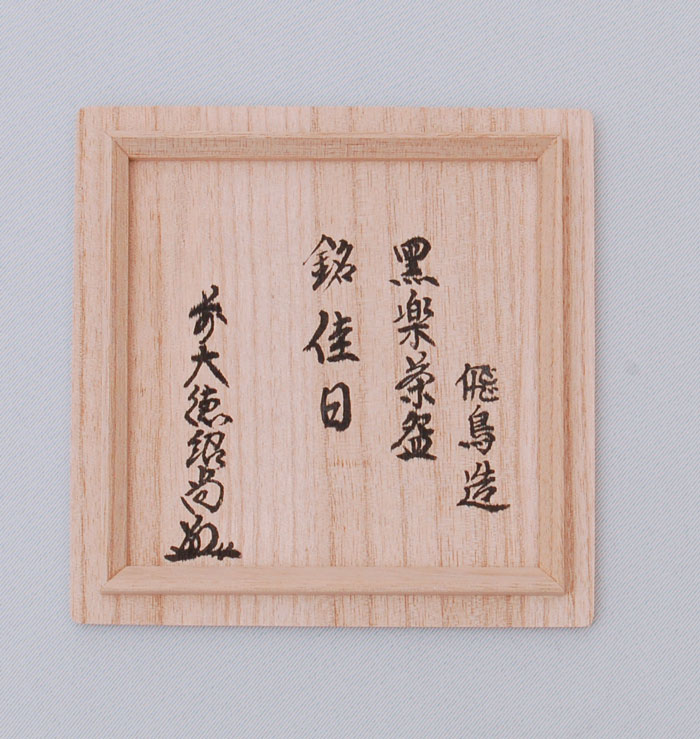 飛鳥造
黒楽茶盌
銘佳日
前大徳紹尚